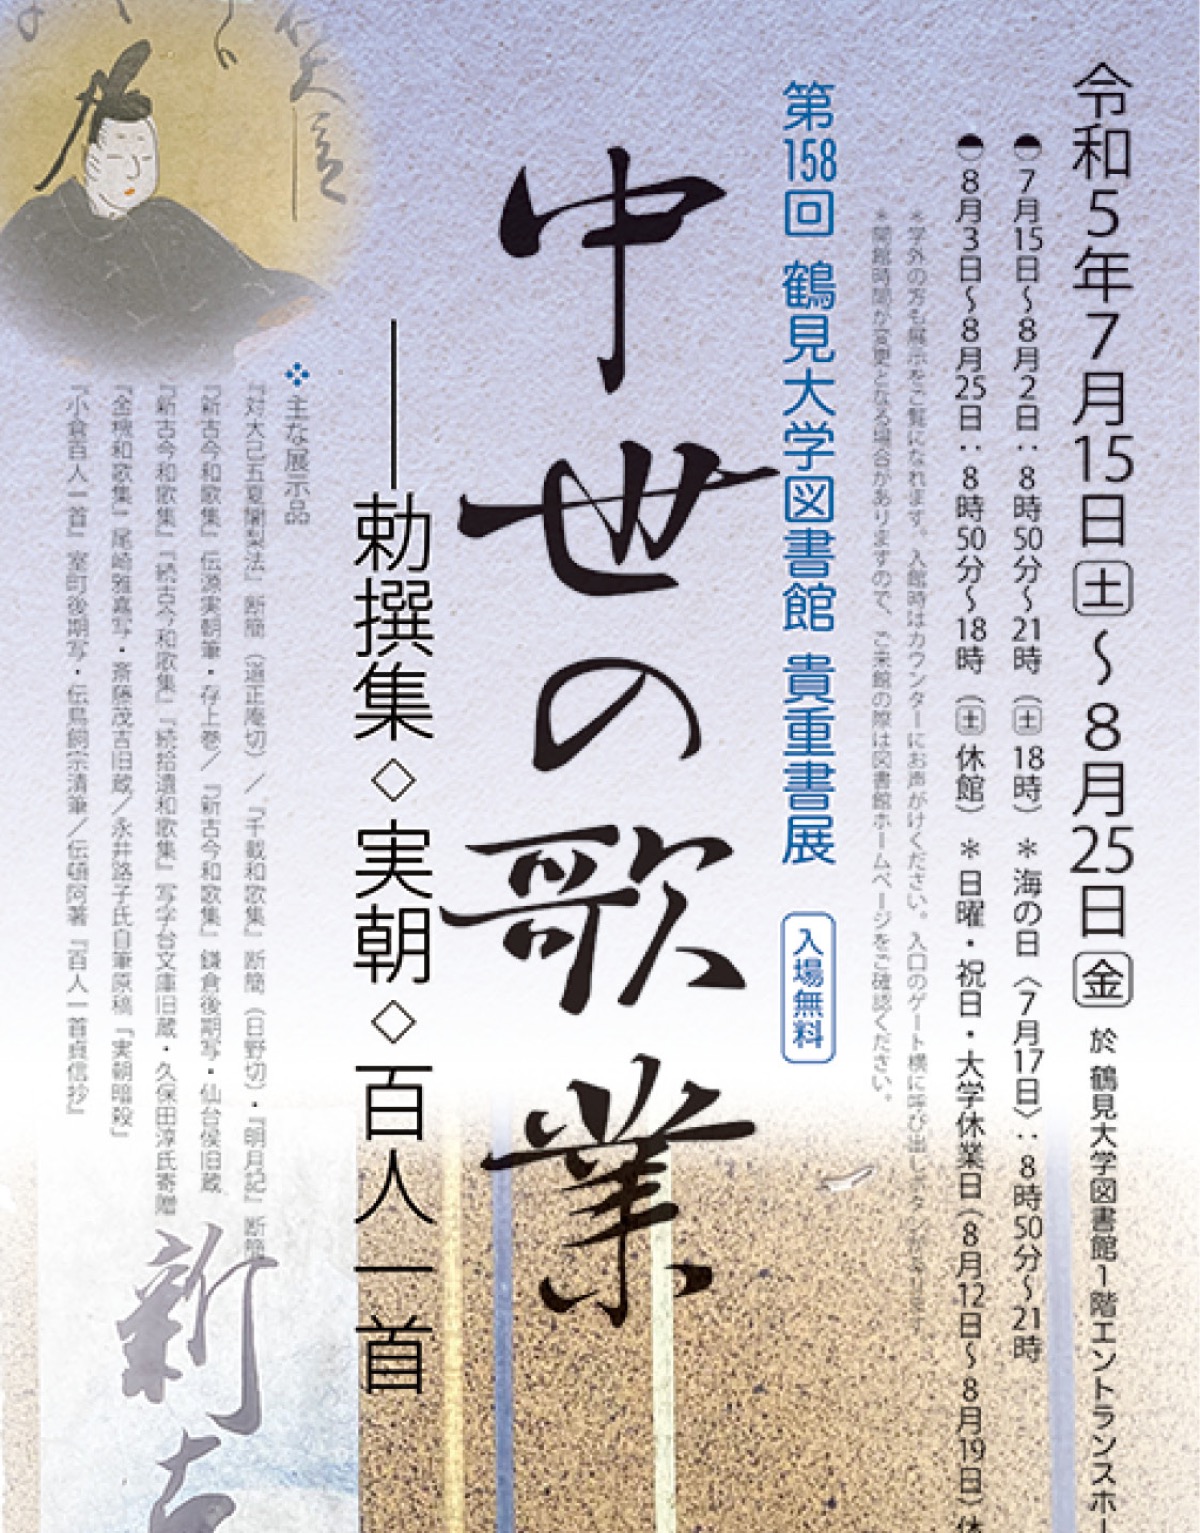 令和5年7月15日㊏〜8月25日㊎ 於 鶴見大学図書館1階エントランスホー
◓7月15日〜8月2日：8時50分〜21時（㊏18時）＊海の日〈7月17日〉：8時50分〜21時
◓8月3日〜8月25日：8時50分〜18時（㊏休館）＊日曜・祝日・大学休業日（8月12日〜8月19日）休
＊学外の方も展示をご覧になれます。入館時はカウンターにお声がけください。入口のゲート横に呼び出しボタンがあります。
＊開館時間が変更となる場合がありますので、ご来館の際は図書館ホームページをご確認ください。
第158回 鶴見大学図書館 貴重書展 入場無料
中世の歌業
──勅撰集◇実朝◇百人一首
❖主な展示品
『対大己五夏闍梨法』断簡（道正庵切）／『千載和歌集』断簡（日野切）・『明月記』断簡
『新古今和歌集』伝源実朝筆・存上巻／『新古今和歌集』鎌倉後期写・仙台侯旧蔵
『新古今和歌集』『続古今和歌集』『続拾遺和歌集』写字台文庫旧蔵・久保田淳氏寄贈
『金槐和歌集』尾崎雅嘉写・斎藤茂吉旧蔵／永井路子氏自筆原稿「実朝暗殺」
『小倉百人一首』室町後期写・伝鳥飼宗清筆／伝頓阿著『百人一首貞信抄』
新古